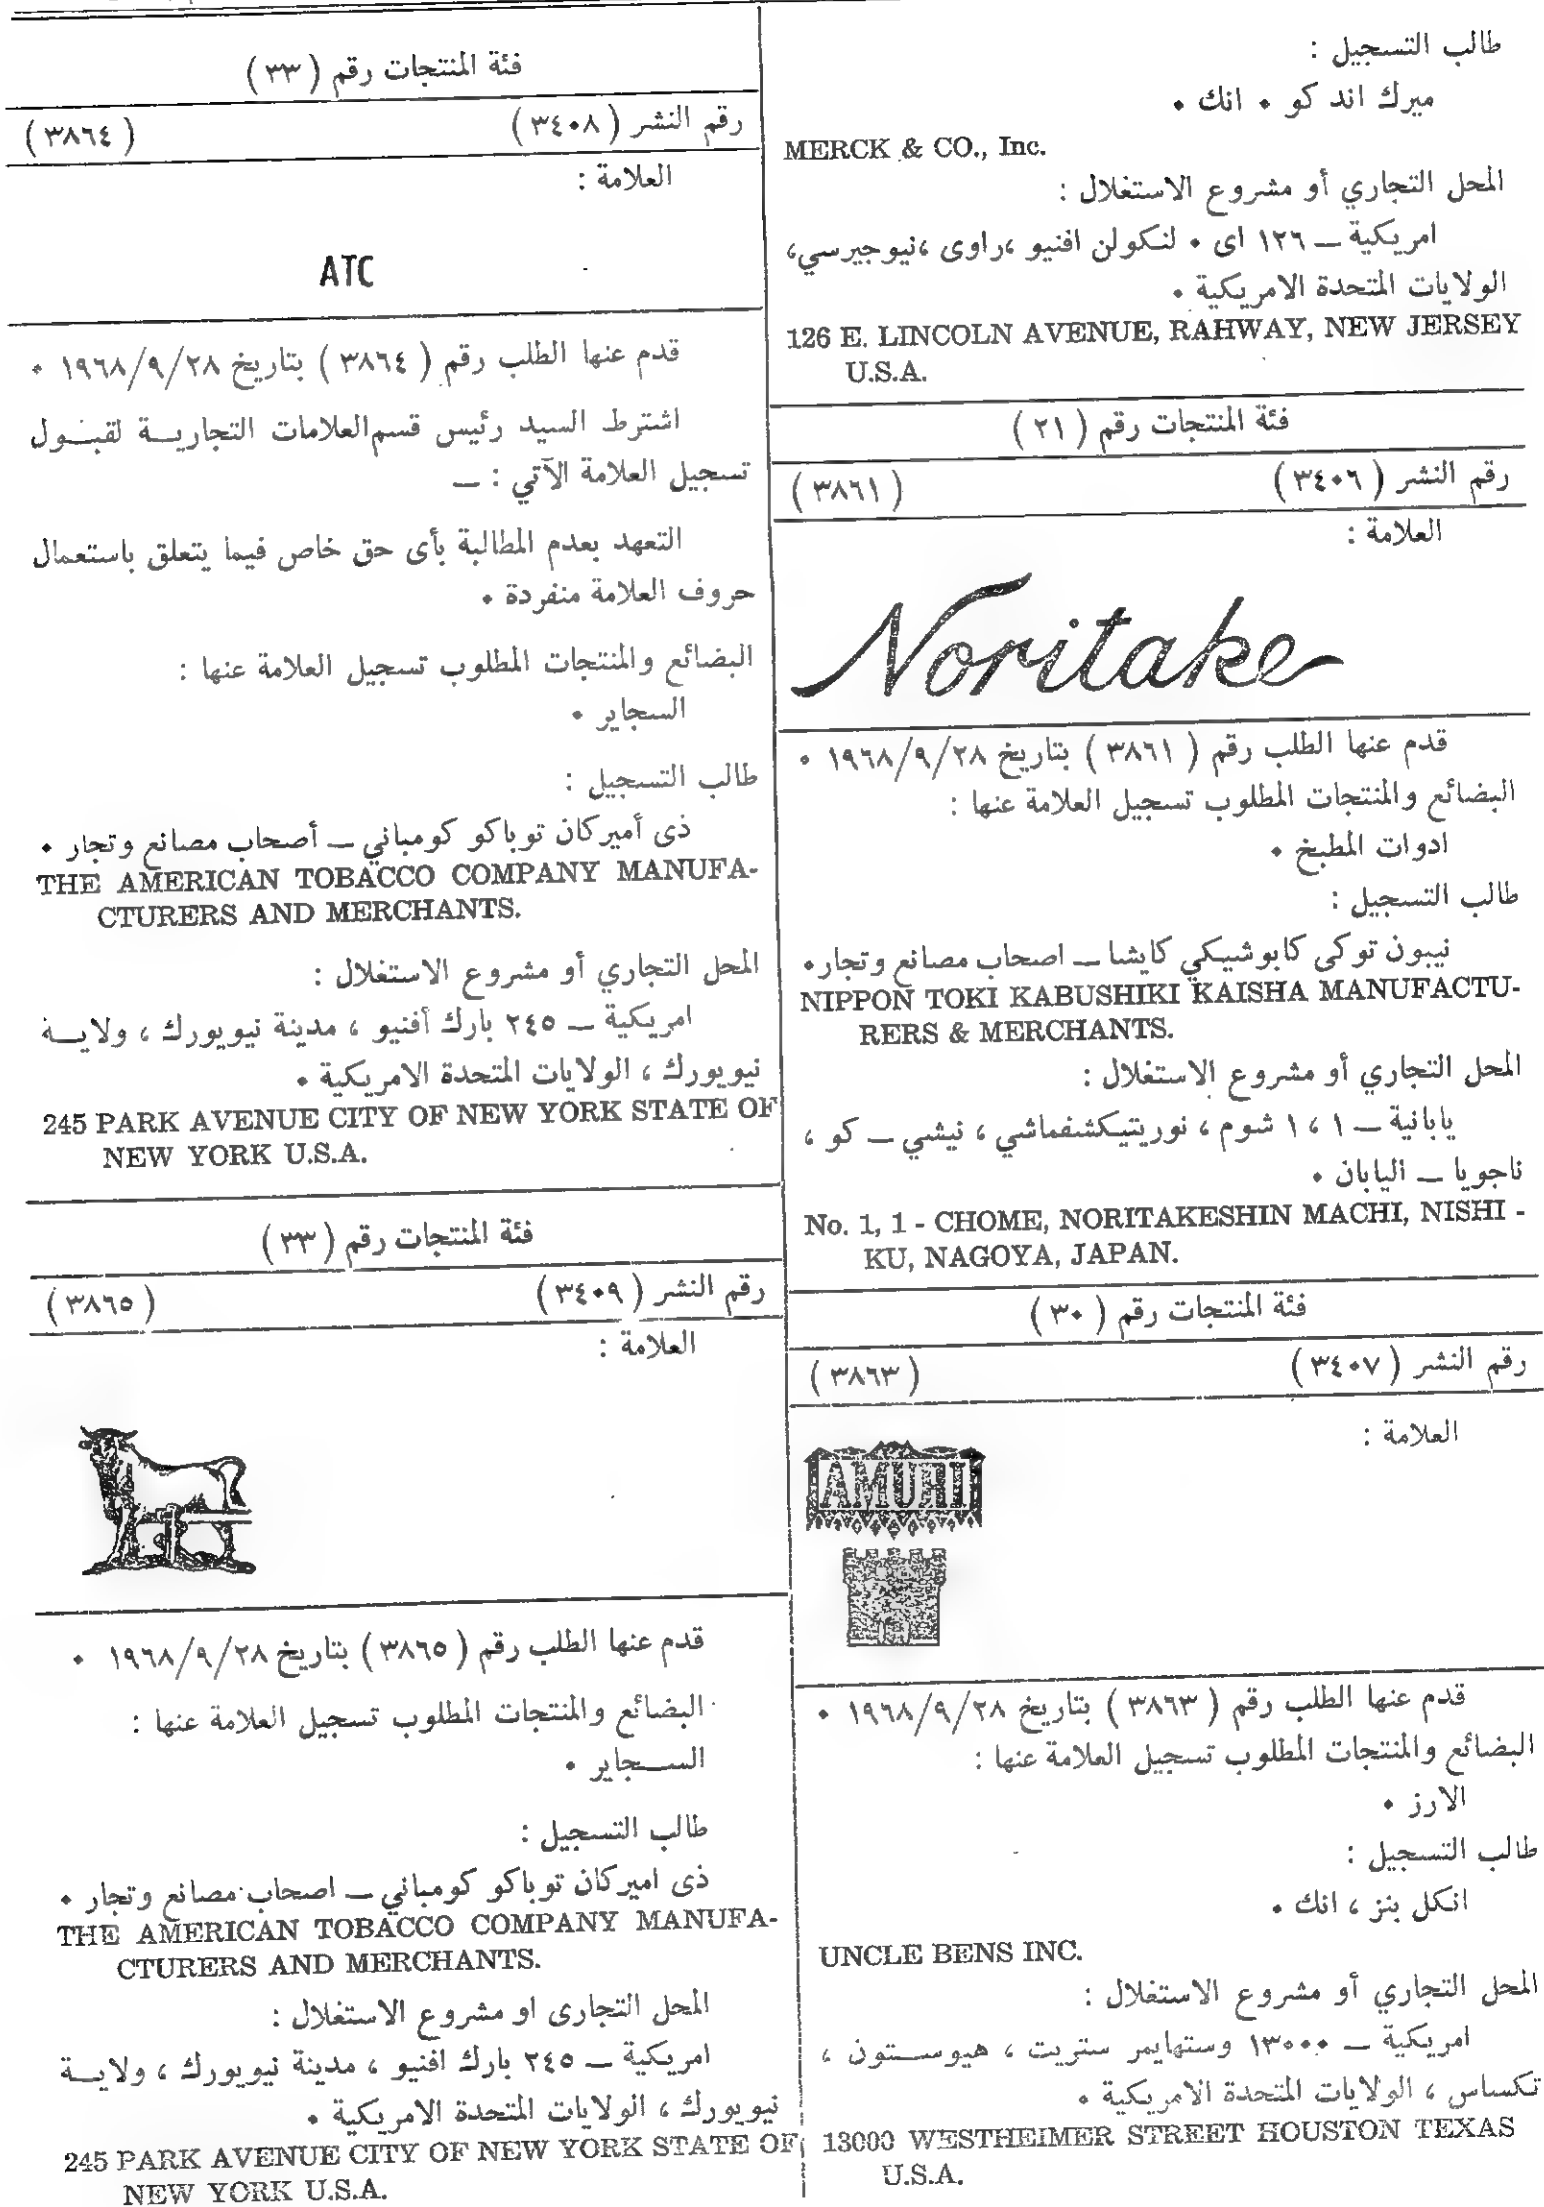 طالب التسجيل :
ميرك اند كو ٠ انك ٠
MERCK & CO., Inc.
المحل التجاري أو مشروع الاستغلال :
امريكية ــ ١٢٦ اى ٠ لنكولن افنيو ،راوى ،نيوجيرسي،
الولايات المتحدة الامريكية ٠
126 E. LINCOLN AVENUE, RAHWAY, NEW JERSEY
U.S.A.
فئة المنتجات رقم ( ٢١ )
رقم النشر ( ٣٤٠٦ ) ( ٣٨٦١ )
العلامة :
Noritake
قدم عنها الطلب رقم ( ٣٨٦١ ) بتاريخ ١٩٦٨/٩/٢٨ ٠
البضائع والمنتجات المطلوب تسجيل العلامة عنها :
ادوات المطبخ ٠
طالب التسجيل :
نيبون توكى كابوشيكي كايشا ــ اصحاب مصانع وتجار٠
NIPPON TOKI KABUSHIKI KAISHA MANUFACTU-
RERS & MERCHANTS.
المحل التجاري أو مشروع الاستغلال :
يابانية ــ ١ ، ١ شوم ، نوريتيكشفماشي ، نيشي ــ كو ،
ناجويا ــ اليابان ٠
No. 1, 1 - CHOME, NORITAKESHIN MACHI, NISHI -
KU, NAGOYA, JAPAN.
فئة المنتجات رقم ( ٣٠ )
رقم النشر ( ٣٤٠٧ ) ( ٣٨٦٣ )
العلامة :
AMURI
قدم عنها الطلب رقم ( ٣٨٦٣ ) بتاريخ ١٩٦٨/٩/٢٨ ٠
البضائع والمنتجات المطلوب تسجيل العلامة عنها :
الارز ٠
طالب التسجيل :
انكل بنز ، انك ٠
UNCLE BENS INC.
المحل التجاري أو مشروع الاستغلال :
امريكية ــ ١٣٠٠٠ وستهايمر ستريت ، هيوســتون ،
تكساس ، الولايات المتحدة الامريكية ٠
13000 WESTHEIMER STREET HOUSTON TEXAS
U.S.A.
فئة المنتجات رقم ( ٣٣ )
رقم النشر ( ٣٤٠٨ ) ( ٣٨٦٤ )
العلامة :
ATC
قدم عنها الطلب رقم ( ٣٨٦٤ ) بتاريخ ١٩٦٨/٩/٢٨ ٠
اشترط السيد رئيس قسم العلامات التجاريــة لقبــول
تسجيل العلامة الآتي : ــ
التعهد بعدم المطالبة بأى حق خاص فيما يتعلق باستعمال
حروف العلامة منفردة ٠
البضائع والمنتجات المطلوب تسجيل العلامة عنها :
السجاير ٠
طالب التسجيل :
ذى أميركان توباكو كومباني ــ أصحاب مصانع وتجار ٠
THE AMERICAN TOBACCO COMPANY MANUFA-
CTURERS AND MERCHANTS.
المحل التجاري أو مشروع الاستغلال :
امريكية ــ ٢٤٥ بارك أفنيو ، مدينة نيويورك ، ولايــة
نيويورك ، الولايات المتحدة الامريكية ٠
245 PARK AVENUE CITY OF NEW YORK STATE OF
NEW YORK U.S.A.
فئة المنتجات رقم ( ٣٣ )
رقم النشر ( ٣٤٠٩ ) ( ٣٨٦٥ )
العلامة :
قدم عنها الطلب رقم ( ٣٨٦٥ ) بتاريخ ١٩٦٨/٩/٢٨ ٠
البضائع والمنتجات المطلوب تسجيل العلامة عنها :
الســجاير ٠
طالب التسجيل :
ذى اميركان توباكو كومباني ــ اصحاب مصانع وتجار ٠
THE AMERICAN TOBACCO COMPANY MANUFA-
CTURERS AND MERCHANTS.
المحل التجارى او مشروع الاستغلال :
امريكية ــ ٢٤٥ بارك افنيو ، مدينة نيويورك ، ولايــة
نيويورك ، الولايات المتحدة الامريكية ٠
245 PARK AVENUE CITY OF NEW YORK STATE OF
NEW YORK U.S.A.